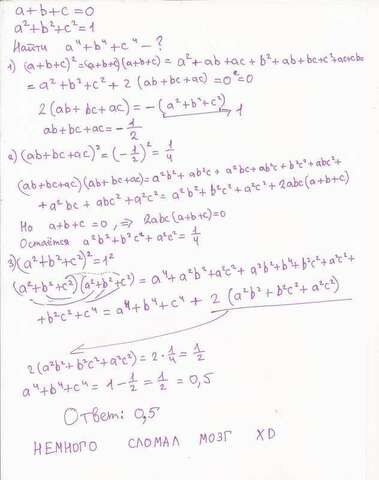 a+b+c=0
a²+b²+c²=1
Найти a⁴+b⁴+c⁴ - ?
1) (a+b+c)²=(a+b+c)(a+b+c)= a²+ab+ac+b²+ab+bc+c²+ac+bc=
= a²+b²+c²+2(ab+bc+ac)=0²=0
2(ab+bc+ac)=-(a²+b²+c²) 1
ab+bc+ac=-1/2
2) (ab+bc+ac)²=(-1/2)²=1/4
(ab+bc+ac)(ab+bc+ac)=a²b²+ab²c+a²bc+ab²c+b²c²+abc²+
+a²bc+abc²+a²c²=a²b²+b²c²+a²c²+2abc(a+b+c)
Но a+b+c=0, ⇒ 2abc(a+b+c)=0
Остаётся a²b²+b²c²+a²c²=1/4
3) (a²+b²+c²)²=1²
(a²+b²+c²)(a²+b²+c²)=a⁴+a²b²+a²c²+a²b²+b⁴+b²c²+a²c²+
+b²c²+c⁴=a⁴+b⁴+c⁴+2(a²b²+b²c²+a²c²)
2(a²b²+b²c²+a²c²)=2·1/4=1/2
a⁴+b⁴+c⁴=1-1/2=1/2=0,5
Ответ: 0,5
НЕМНОГО СЛОМАЛ МОЗГ XD